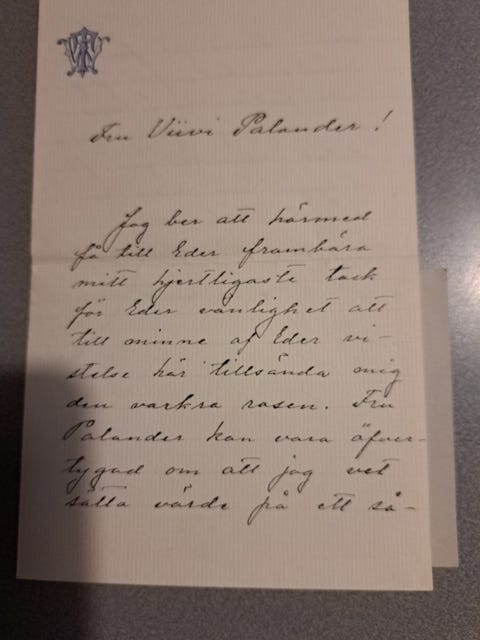 Fru Viivi Palander!
Jag ber att härmed
få till Eder frambära
mitt hjertligaste tack
för Eder vänlighet att
till minne af Eder vi-
stelse här tillsända mig
den vackra rosen. Fru
Palander kan vara öfver-
tygad om att jag vet
sätta värde på ett så-